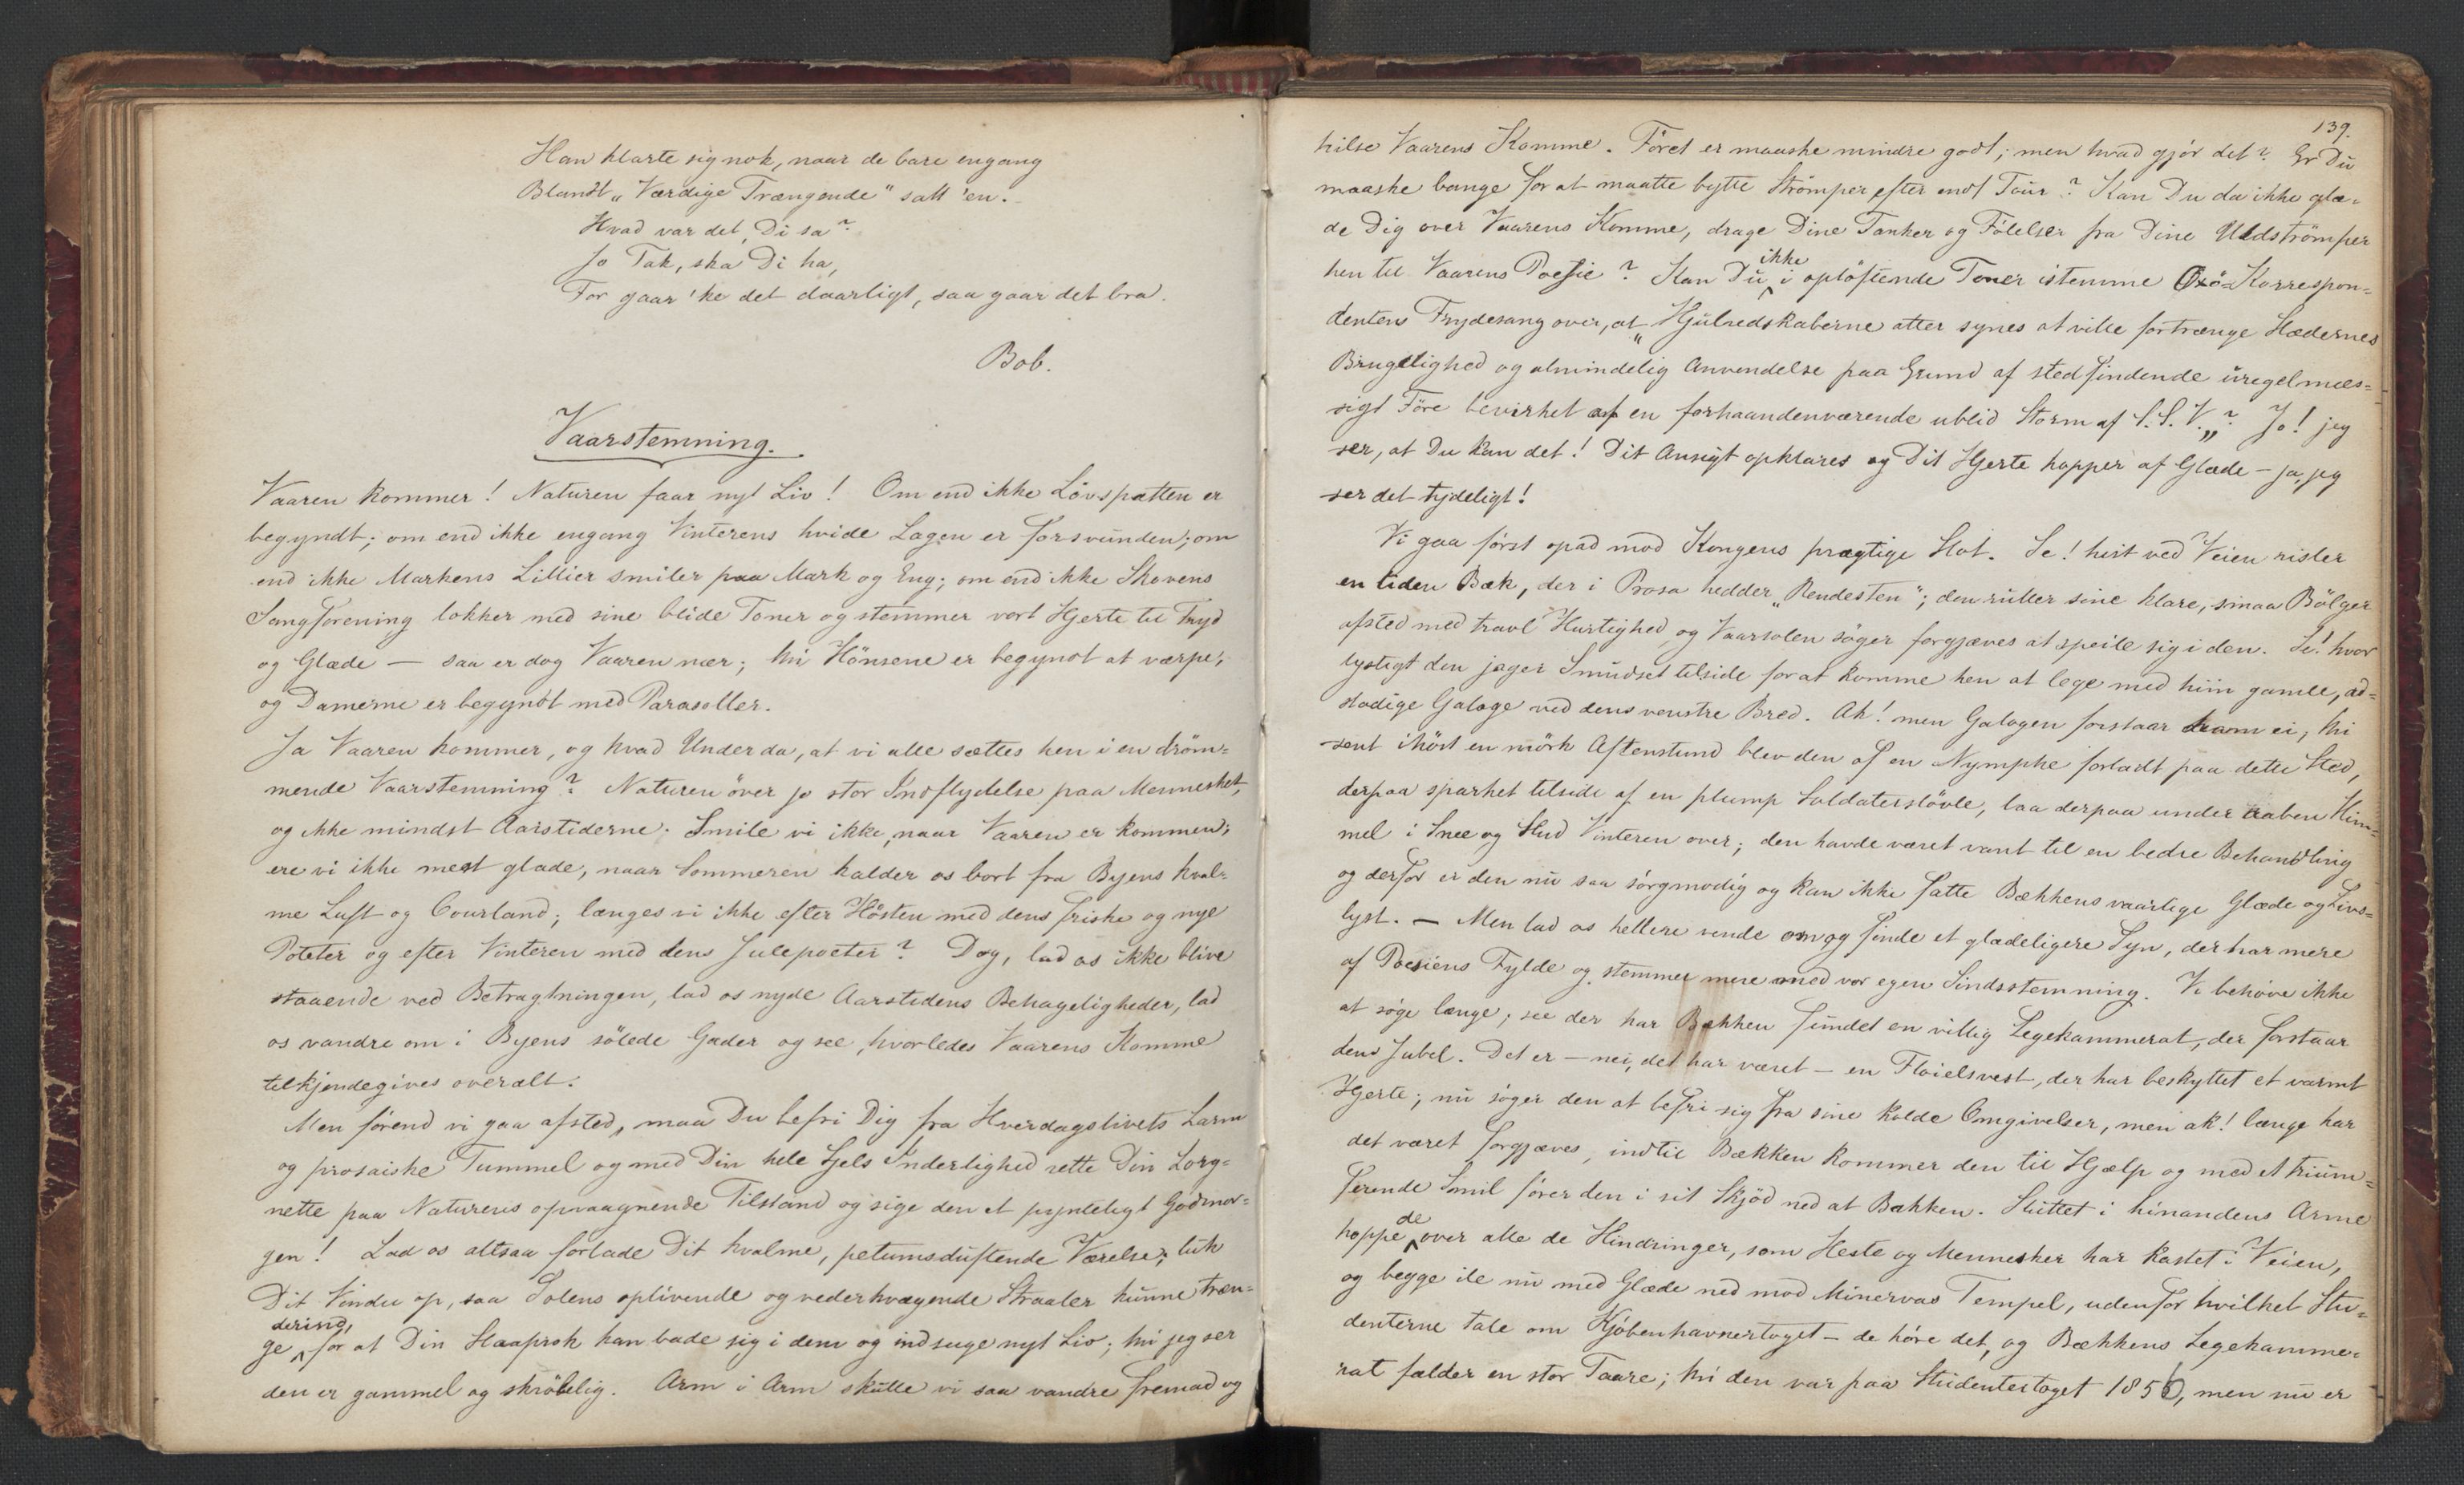 Han klarte sig nok, naar de bare engang
Blandt „Værdige Trængende" satt 'en.
Hvad var det, Di sa?
Jo Tak, ska Di ha,
For gaar 'ke det daarligt, saa gaar det bra.
Bob.
Vaarstemning.
Vaaren kommer! Naturen faar nyt Liv! Om end ikke Lövspætten er
begyndt; om end ikke engang Vinterens hvide Lagen er forsvunden; om
end ikke Markens Lillier smiler paa Mark og Eng; om end ikke Skovens
Sangforening lokker med sine blide Toner og stemmer vort Hjerte til Fryd
og Glæde — saa er dog Vaaren nær; thi Hönsene er begyndt at værpe,
og Damerne er begyndt med Parasoller.
Ja Vaaren kommer, og hvad Under da, at vi alle sættes hen i en dröm=
mende Vaarstemning? Naturen över jo stor Indflydelse paa Mennesket,
og ikke mindst Aarstiderne. Smile vi ikke, naar Vaaren er kommen;
ere vi ikke mest glade, naar Sommeren kalder os bort fra Byens kval=
me Luft og Courland; længes vi ikke efter Hösten med dens friske og nye
Poteter og efter Vinteren med dens Julepoeter? Dog, lad os ikke blive
staaende ved Betragtningen, lad os nyde Aarstidens Behageligheder, lad
os vandre om i Byens sölede Gader og see, hvorledes Vaarens Komme
tilkjendegives overalt.
Men förend vi gaa afsted, maa Du befri Dig fra Hverdagslivets Larm
og prosaiske Tummel og med Din hele Sjels Inderlighed rette Din Lorg=
nette paa Naturens opvaagnende Tilstand og sige den et pynteligt Godmor=
gen! Lad os altsaa forlade Dit kvalme, petumsduftende Værelse; luk
Dit Vindu op, saa Solens oplivende og vederkvægende Straaler kunne træn=
derind,
ge for at Din Slaaprok kan bade sig i dem og indsuge nyt Liv; thi jeg ser
den er gammel og skröbelig. Arm i Arm skulle vi saa vandre fremad og
139.
hilse Vaarens Komme. Föret er maaske mindre godt; men hvad gjör det? Er Du
maaske bange for at maatte bytte Strömper efter endt Tour? Kan Du da ikke glæ=
de Dig over Vaarens Komme, drage Dine Tanker og Fölelser fra Dine Uldströmper
ikke
hen til Vaarens Poesie? Kan Du i oplöftende Toner istemme Oxö=Korrespon=
dentens Frydesang over, at „Hjulredskaberne atter synes at ville fortrænge Slædernes
Brugelighed og almindelig Anvendelse paa Grund af stedfindende uregelmæs=
sigt Före bevirket af en forhaandenværende ublid Storm af S.S.V."? Jo! jeg
ser, at Du kan det! Dit Ansigt opklares og Dit Hjerte hopper af Glæde — ja, jeg
ser det tydeligt!
Vi gaa först opad mod Kongens prægtige Slot. Se! hist ved Veien risler
en liden Bæk, der i Prosa hedder „Rendesten"; den ruller sine klare, smaa Bölger
afsted med travl Hurtighed, og Vaarsolen söger forgjæves at speile sig i den. Se! hvor
lystigt den jager Smudset tilside for at komme hen at lege med hiin gamle, ad=
stadige Galoge ved dens venstre Bred. Ak! men Galogen forstaar ham ei, thi
sent ihöst en mörk Aftenstund blev den af en Nymphe forladt paa dette Sted,
derpaa sparket tilside af en plump Soldaterstövle, laa derpaa under aaben Him=
mel i Snee og Slud Vinteren over; den havde været vant til en bedre Behandling
og derfor er den nu saa sörgmodig og kan ikke fatte Bækkens vaarlige Glæde og Livs=
lyst. — Men lad os hellere vende om og finde et glædeligere Syn, der har mere
af Poesiens Fylde og stemmer mere med vor egen Sindsstemning. Vi behöve ikke
at söge længe; see der har Bækken fundet en villig Legekammerat, der forstaar
dens Jubel. Det er — nei, det har været — en Flöielsvest, der har beskyttet et varmt
Hjerte; nu söger den at befri sig fra sine kolde Omgivelser, men ak! længe har
det været forgjæves, indtil Bækken kommer den til Hjælp og med et trium=
ferende Smil förer den i sit Skjöd ned at Bakken. Sluttet i hinandens Arme
de
hoppe over alle de Hindringer, som Heste og Mennesker har kastet i Veien,
og begge ile nu med Glæde ned mod Minervas Tempel, udenfor hvilket Stu=
denterne tale om Kjöbenhavnertoget — de höre det, og Bækkens Legekamme=
rat fælder en stor Taare; thi den var paa Studentertoget 1856, men nu er